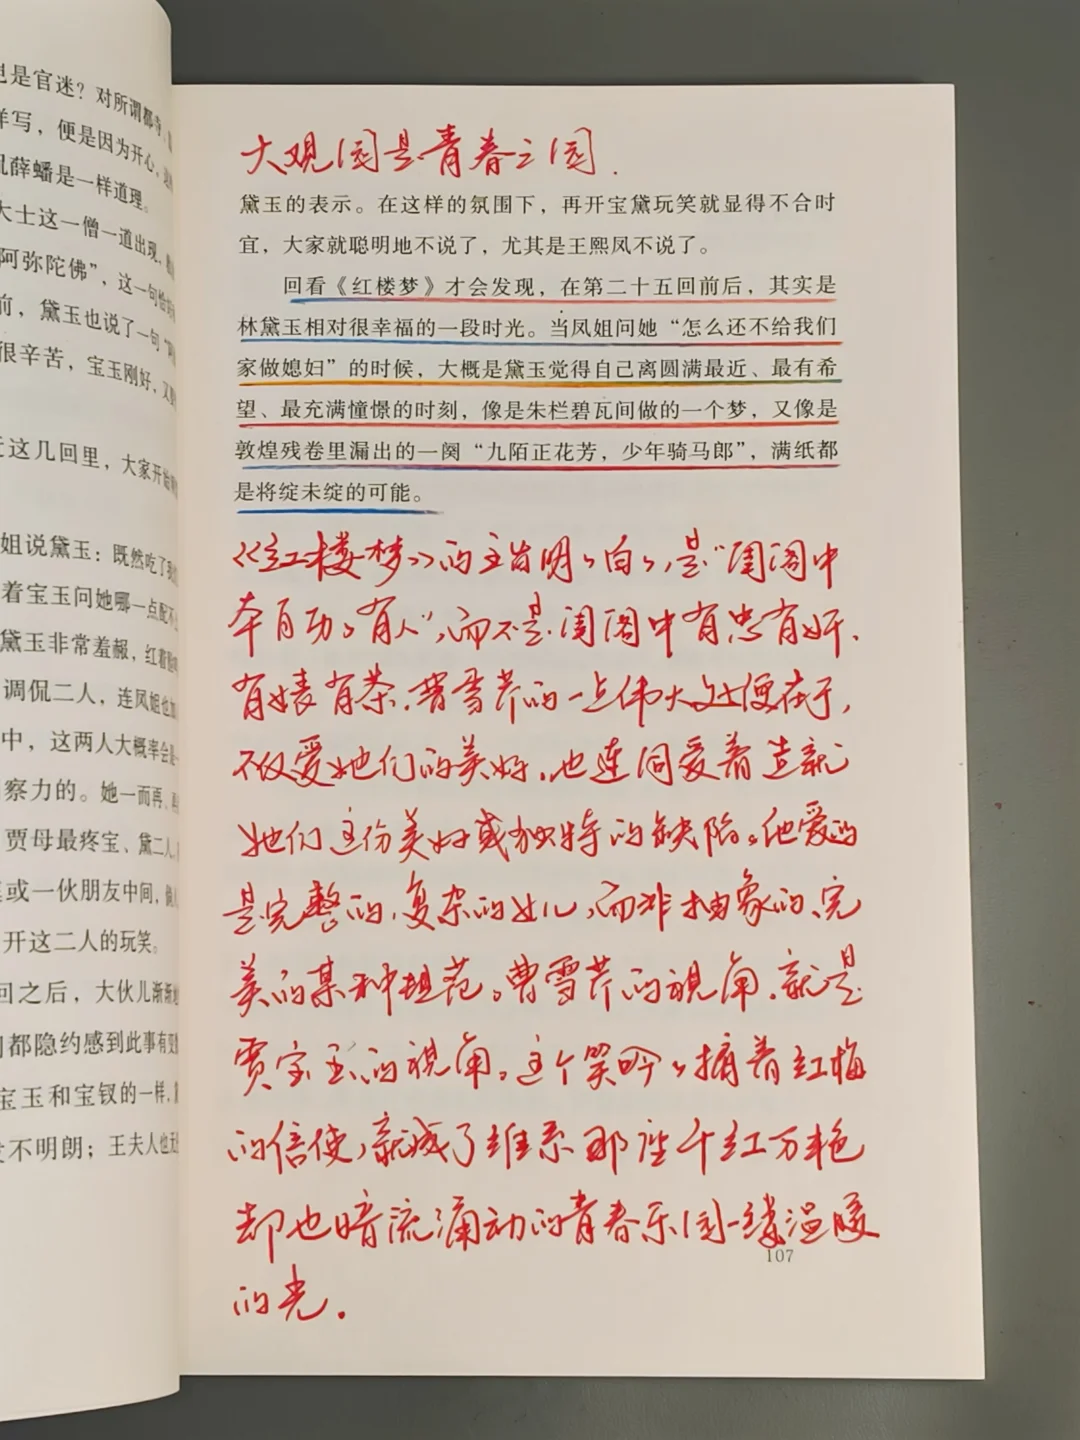 也是官迷？对所谓都寺
样写，便是因为开心
薛蟠是一样道理。
大士这一僧一道出现，
阿弥陀佛”，这一句恰
前，黛玉也说了一句“
很辛苦，宝玉刚好，又
近这几回里，大家开始
姐说黛玉：既然吃了
着宝玉问她哪一点配不
黛玉非常羞赧，红着
调侃二人，连凤姐也加
中，这两人大概率会是一
察力的。她一而再、再
贾母最疼宝、黛二人，
或一伙朋友中间，
开这二人的玩笑。
回之后，大伙儿渐渐地
们都隐约感到此事有变
宝玉和宝钗的一样，
不明朗；王夫人也
大观园是青春之园.
黛玉的表示。在这样的氛围下，再开宝黛玩笑就显得不合时
宜，大家就聪明地不说了，尤其是王熙凤不说了。
回看《红楼梦》才会发现，在第二十五回前后，其实是
林黛玉相对很幸福的一段时光。当凤姐问她“怎么还不给我们
家做媳妇”的时候，大概是黛玉觉得自己离圆满最近、最有希
望、最充满憧憬的时刻，像是朱栏碧瓦间做的一个梦，又像是
敦煌残卷里漏出的一阕“九陌正花芳，少年骑马郎”，满纸都
是将绽未绽的可能。
《红楼梦》的主旨明明白白，是“闺阁中
本自历历有人”，而不是闺阁中有忠有奸、
有婊有茶。曹雪芹的一点伟大处便在于，
不仅爱她们的美好，也连同爱着造就
她们这份美好或独特的缺陷。他爱的
是完整的、复杂的女儿，而非抽象的、完
美的某种模范。曹雪芹的视角，就是
贾宝玉的视角。这个笑吟吟摘着红梅
的信使，就成了维系那座千红万艳
却也暗流涌动的青春乐园一缕温暖
的光.
107